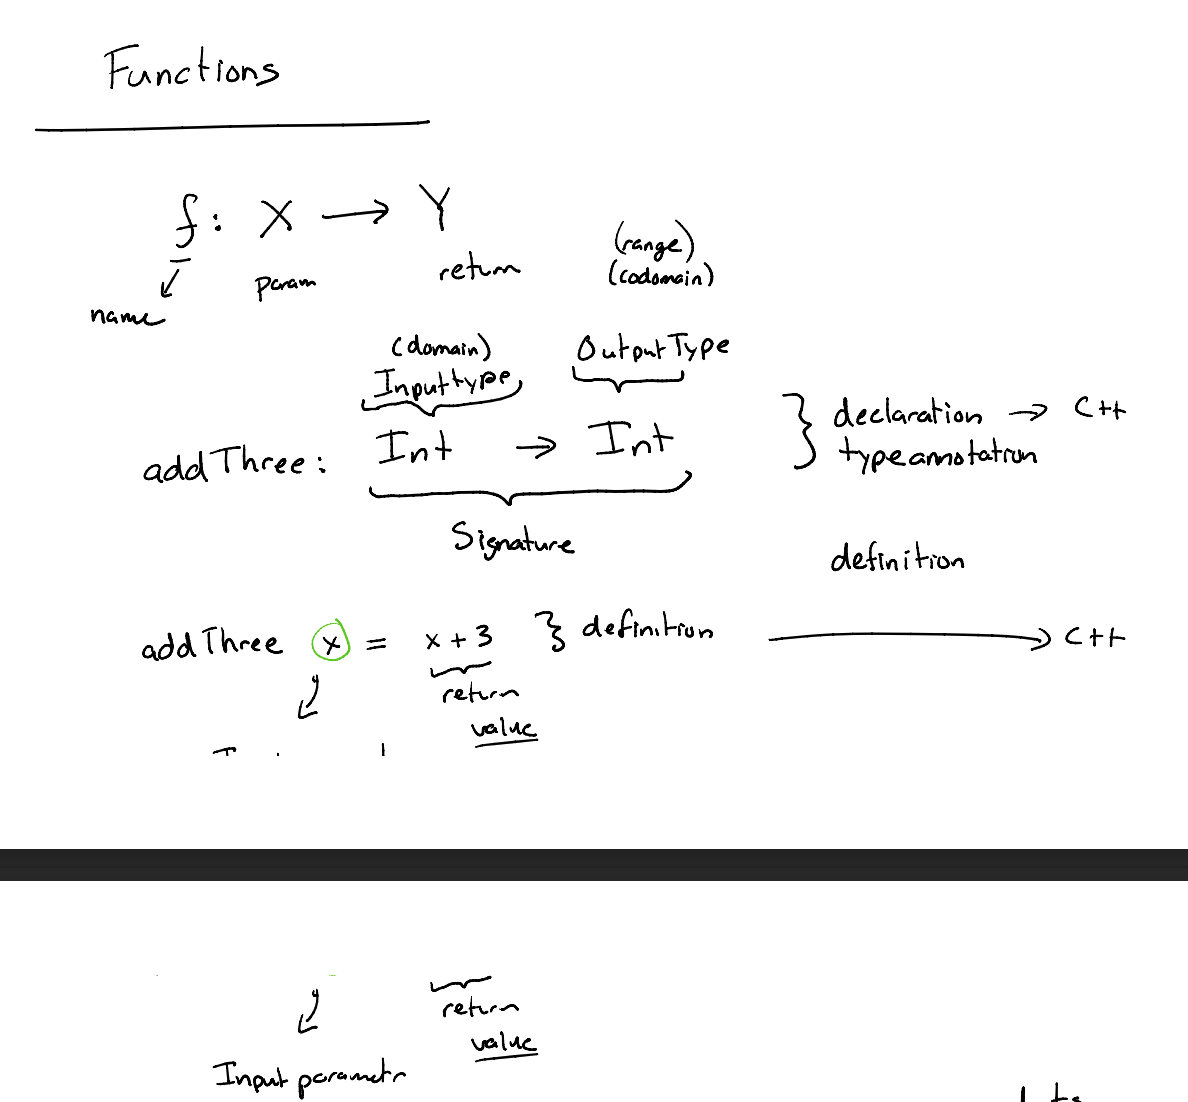 Functions
f: X → Y
name
param
return
(range)
(codomain)
(domain)
Inputtype
OutputType
addThree: Int → Int
} declaration → C++
typeannotation
Signature
definition
addThree x = x + 3 } definition → C++
return
value
return
value
Input parametr